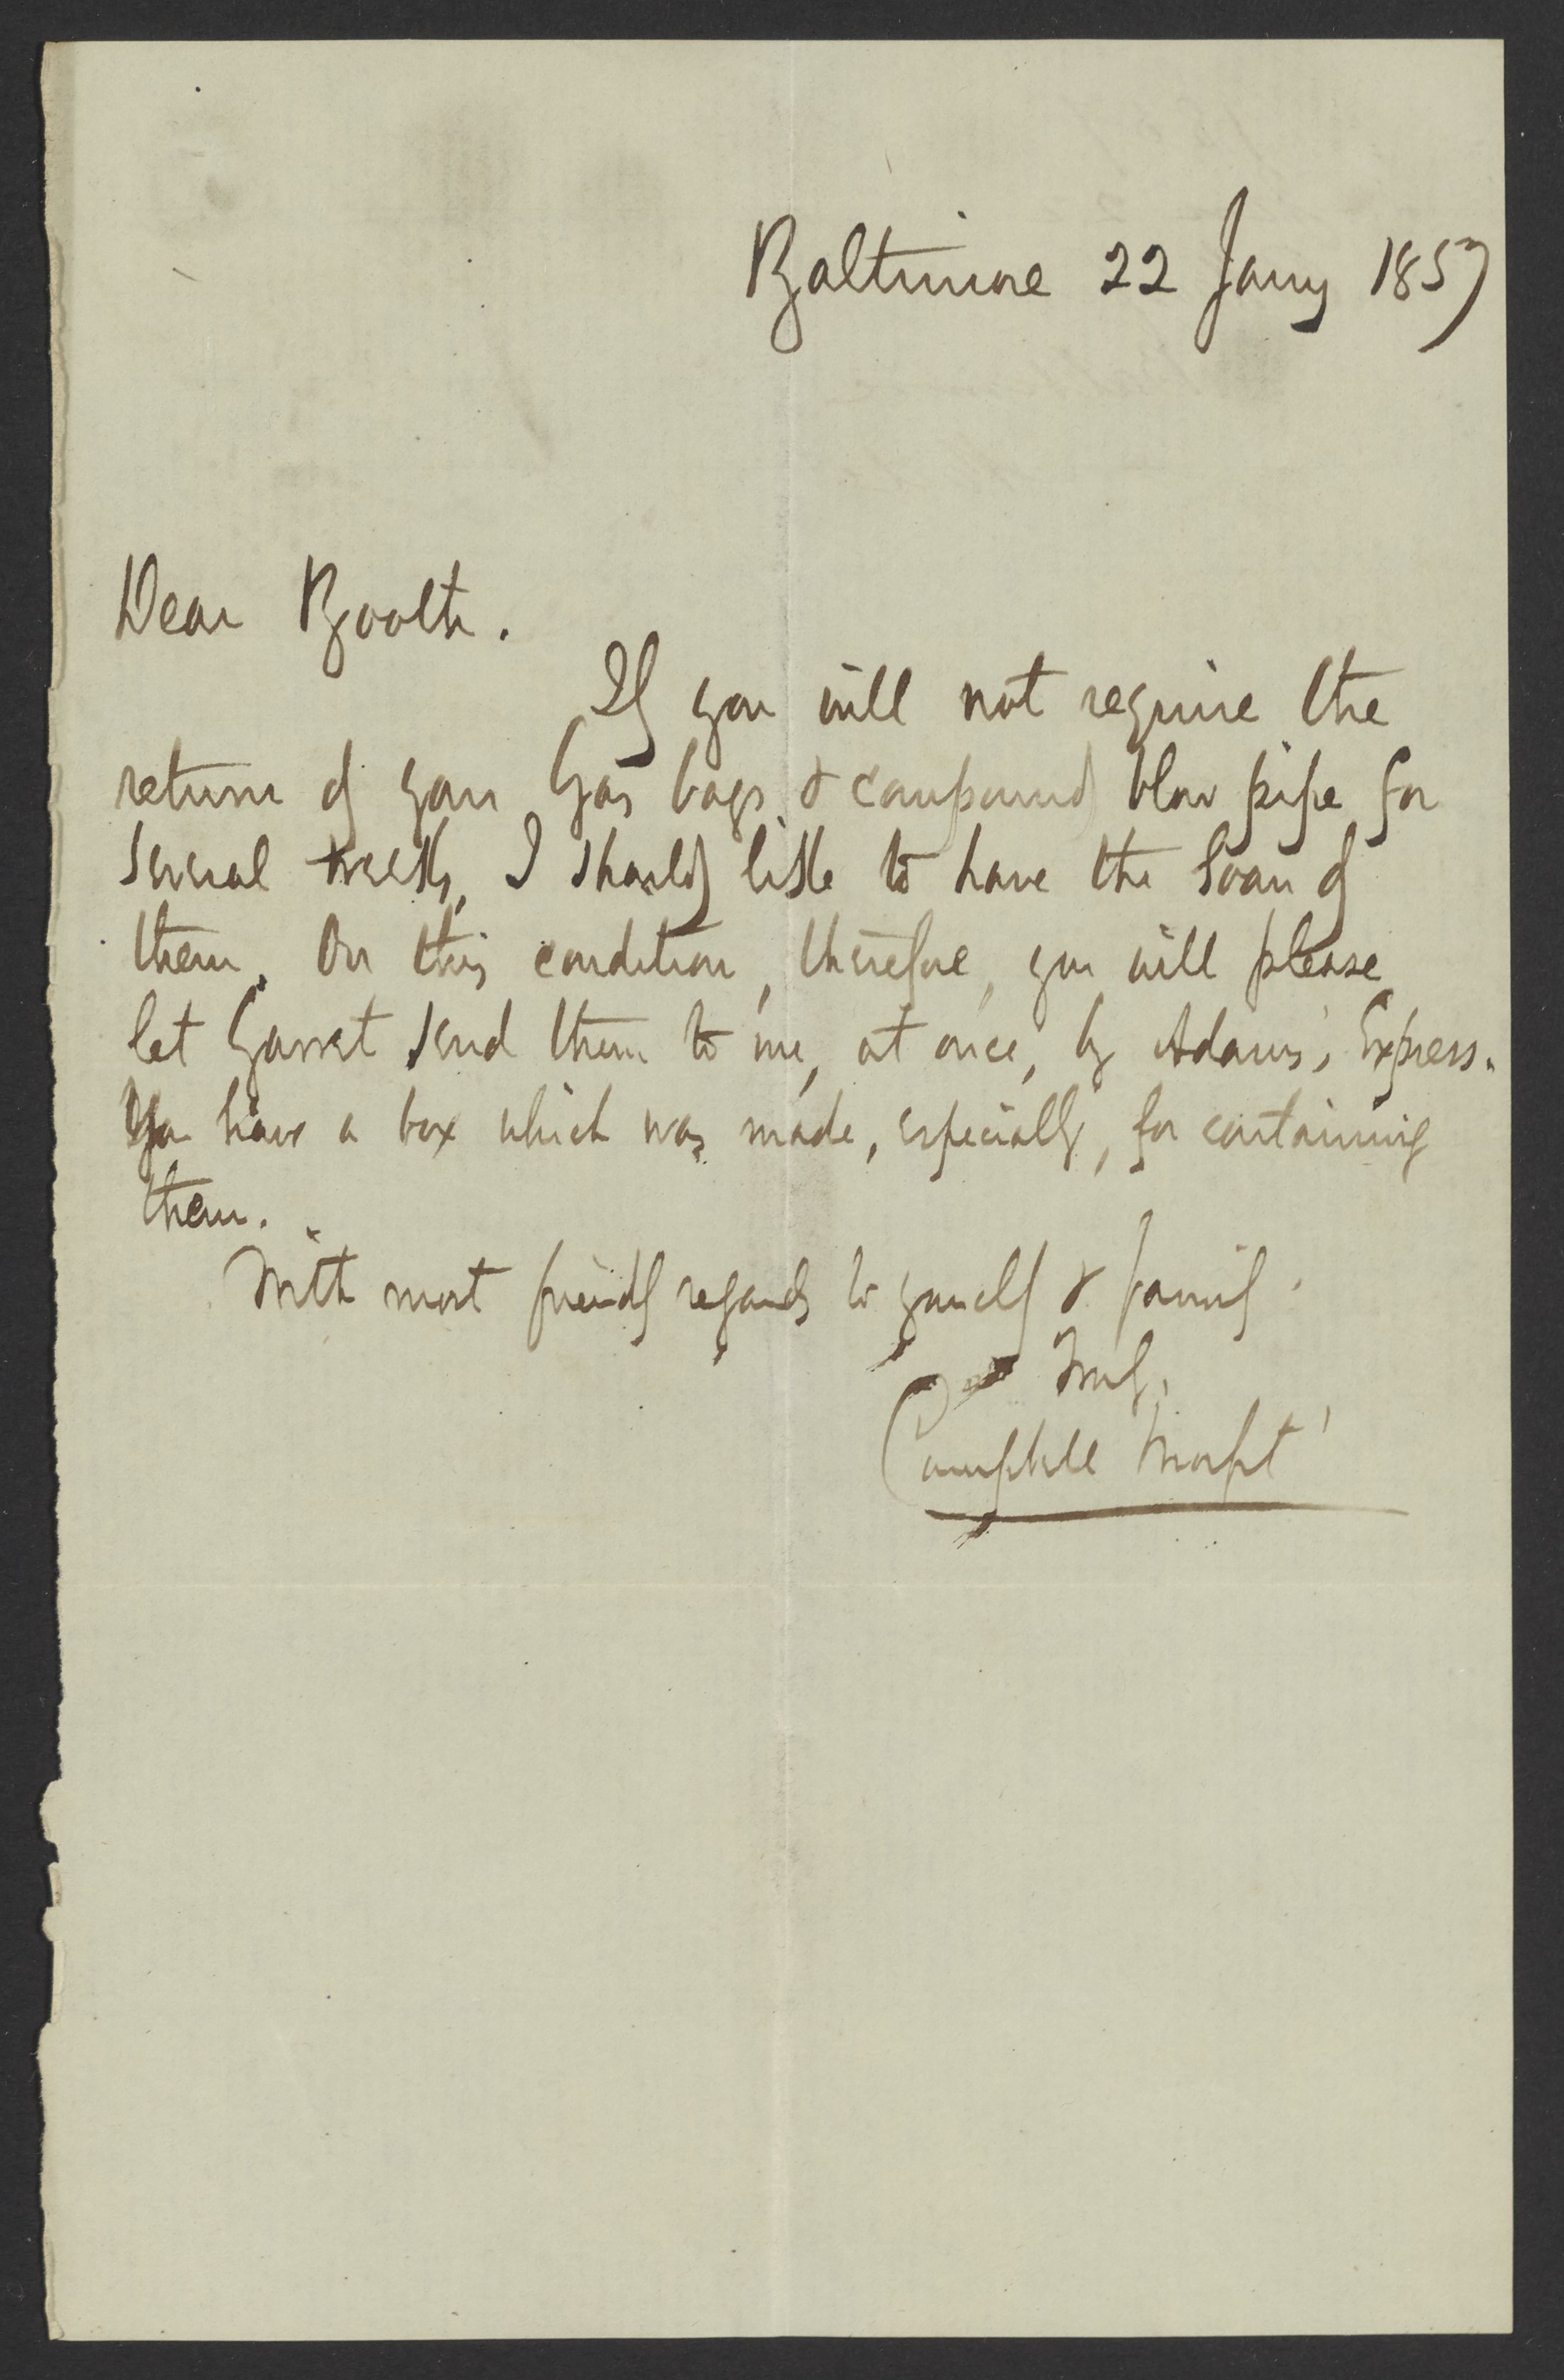 Baltimore 22 Jany 1857
Dear Booth.
If you will not require the
return of your Gas bags & compound blow pipe for
several weeks, I should like to have the loan of
them. On this condition, therefore, you will please
let Garret send them to me, at once, by Adams's Express.
You have a box which was made, especially, for containing
them.
With most friendly regards to yourself & family.
Truly,
Campbell Morfit